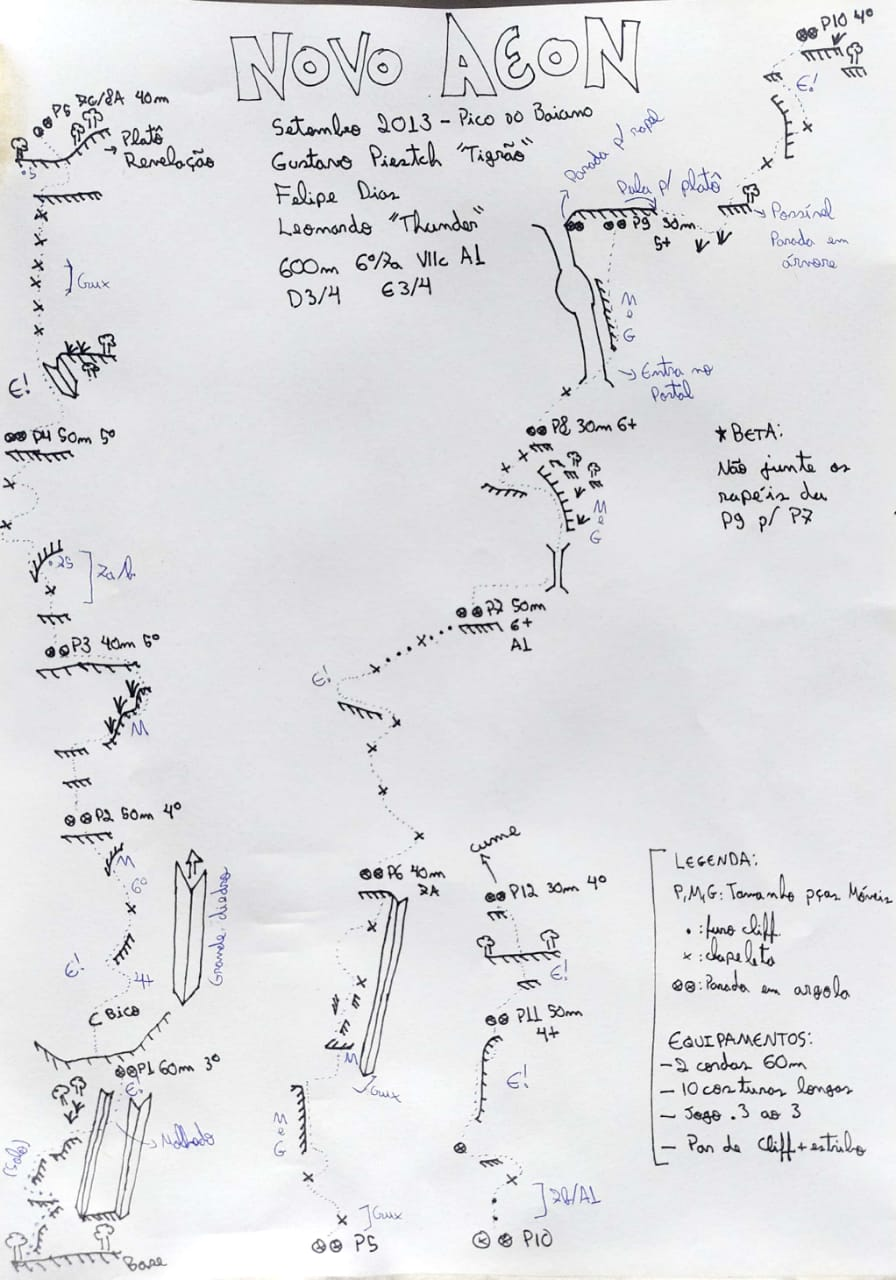 NOVO AEON
Setembro 2013 - Pico do Baiano
Gustavo Piestch "Tigrão"
Felipe Dias
Leonardo "Thunder"
600m 6º/7a VIIc A1
D3/4 E3/4
40m
Platô
Revelação
Crux
E!
P4 50m 5º
P3 40m
M
P2 50m 4º
M
6º
E!
4+
Bico
Grande diedro
P1 60m 3º
E!
Molhado
(Solo)
Base
P10 4º
E!
Parada p/ rapel
Pula p/ platô
P9
5+
Possível
Parada em
árvore
M
e
G
Entra no
Portal
P8 30m 6+
M
e
G
P7 50m
6+
A1
E!
P6 40m
7A
M
Crux
M
e
G
Crux
P5
cume
P12 30m 4º
E!
P11 50m
4+
E!
7b/A1
P10
*BETA:
Não junte os
rapéis da
P9 p/ P7
LEGENDA:
P, M, G: Tamanho pças Móveis
• : furo cliff
x : chapeleta
⊗⊗: Parada em argola
EQUIPAMENTOS:
- 2 cordas 60m
- 10 costuras longas
- Jogo .3 ao 3
- Par de Cliff + estribo